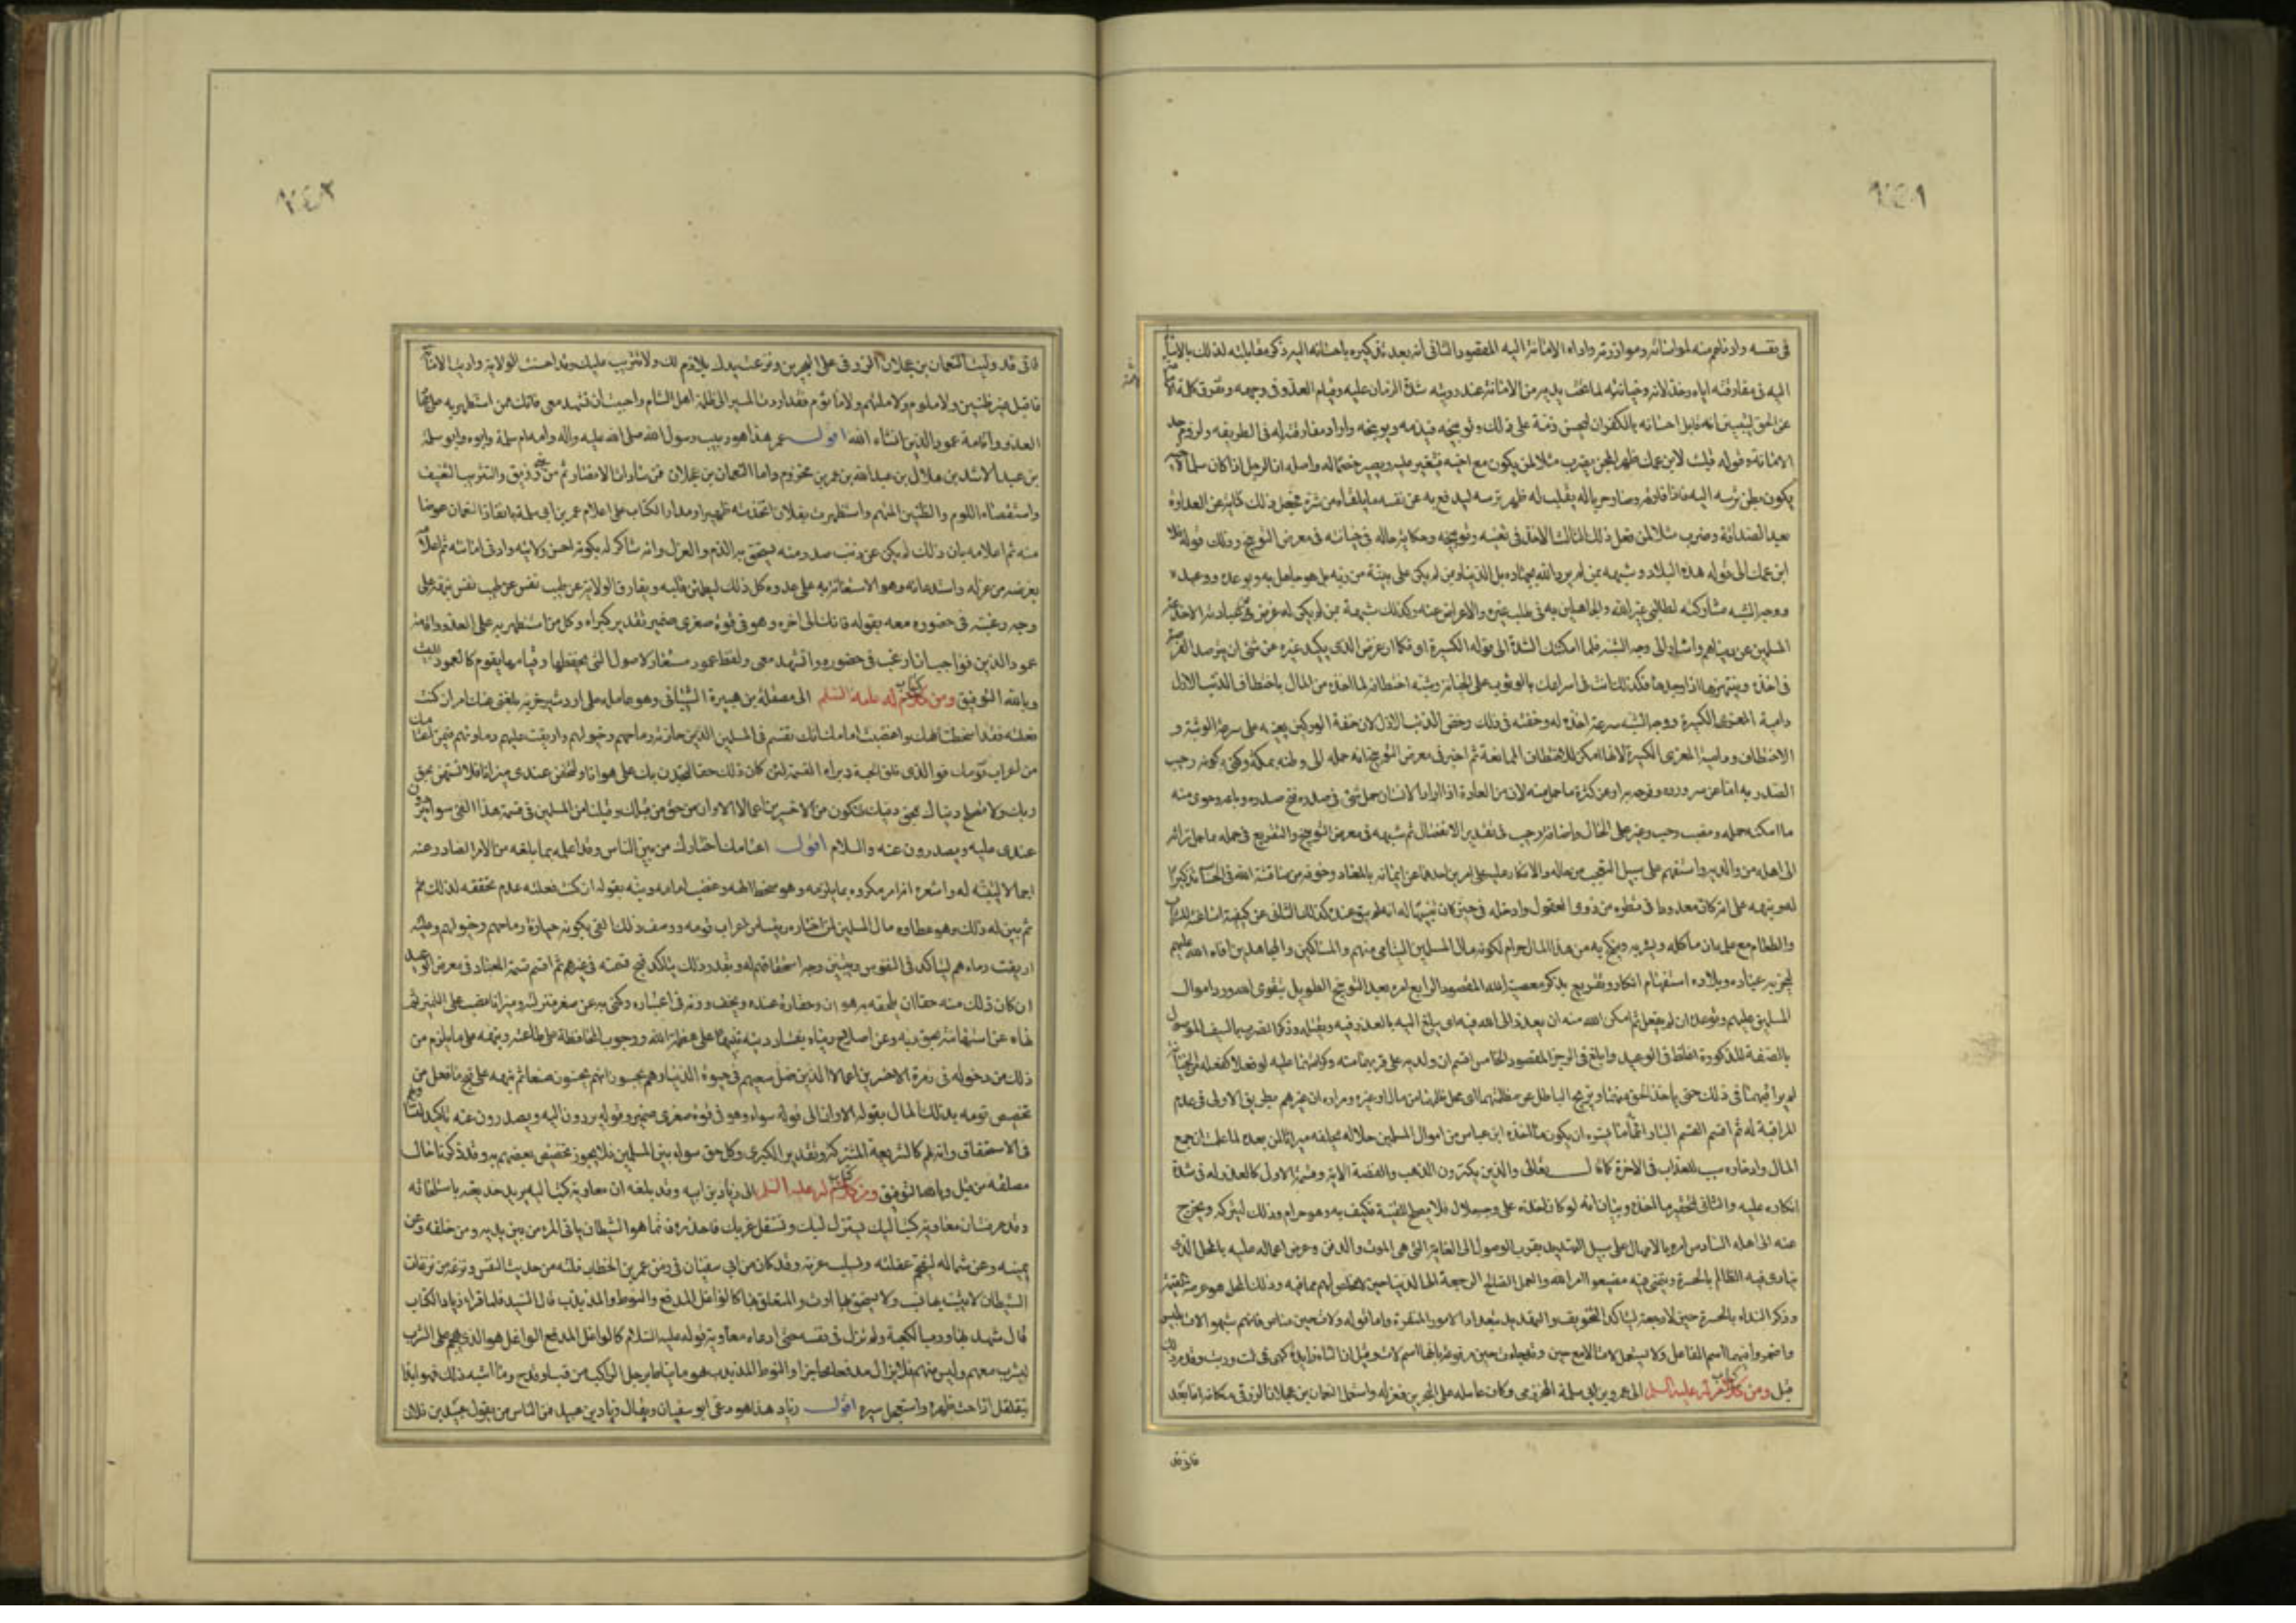 في نفسه وادناهم منه لمواساته وموازرته واداء الامانة اليه المقصود الثاني انه بعد تذكيره باحسانه اليه ذكر مقابلته لذلك بالاساءة
اليه في مفارقته اياه وخذلانه وخيانته لما تحت يديه من الامانة عند رويته شدة الزمان عليه وقيام العدو في وجهه وتفرق كلمة
عن الحق ليتبين انه قابل احسانه بالكفران ليحسن ذمه على ذلك وتوبيخه فيذمه ويوبخه واراد مفارقته له في الطريقه
الامانة وقوله قلبت لابن عمك ظهر المجن يضرب مثلا لمن يكون مع اخيه فيتغير عليه ويصير خصما له واصله ان الرجل اذا كان سلما لاخيه
يكون بطن ترسه اليه فاذا فارقه وصار حربا له يقلب له ظهر ترسه ليدفع به عن نفسه ما يلقاه من شره فجعل ذلك كناية عن العداوة
بعد الصداقة وضرب مثلا لمن فعل ذلك الثالث الاخذ في تعنيفه وتوبيخه وحكاية حاله في خيانته في معرض التوبيخ وذلك قوله فلا
ابن عمك الى قوله هذه البلاد وشبهه بمن لم يرد الله بجهاده بل الدنيا وبمن لم يكن على بينة من ربه بل هو جاهل به وبوعده ووعيده
ووجه الشبه مشاركته لطالبي غير الله والجاهلين به في طلب غيره والاعراض عنه وكذلك شبهه بمن لم يكن له غرض في عبادته الا خدعة
المسلمين عن دنياهم واشار الى وجه الشبه فلما امكنتك الشدة الى قوله الكسيرة اي فكما ان غرض الذي يكيد غيره عن شي ان يترصد الغرة
في اخذه وينتهزها اذا وجدها فكذلك انت في اسراعك بالوثوب على الخيانة وشبه اختطافه لما اخذه من المال باختطاف الذئب الازل
دامية المعزى الكسيرة ووجه الشبه سرعة اخذه له وخفته في ذلك وخص الذئب الازل لان خفة الوركين يعينه على سرعة الوثبة و
الاختطاف ودامية المعزى الكسيرة لانها امكن للاختطاف لعدم الممانعة ثم اخبر في معرض التوبيخ انه حمله الى وطنه بمكة وكنى بكونه رحيب
الصدر به اما عن سروره وفرحه به او عن كثرة ما حمل منه لان من العادة اذا اراد الانسان حمل شي في صدره فتح صدره وباعه وحوى منه
ما امكنه حمله ونصب رحيب وغير على الحال واضافة رحيب في تقدير الانفصال ثم شبهه في معرض التوبيخ والتقريع في حمله بما حمل تراثه
الى اهله من والديه واستفهم على سبيل التعجب من حاله والانكار عليه على امرين احدهما عن ايمانه بالمعاد وخوفه من مناقشة الله في الحساب تذكيرا
له وينبهه على انه كان معدودا في نظره من ذوي العقول وادخله في حيز كان تنبيها له انه لم يبق عنده كذلك الثاني عن كيفية اساغته للشراب
والطعام مع علمه ان ما ياكله ويشربه وينكح به من هذا المال حرام لكونه مال المسلمين اليتامى منهم والمساكين والمجاهدين افاء الله عليهم
ليحرز به عباده وبلاده استفهام انكار وتقريع بذكر معصية الله المقصود الرابع امره بعد التوبيخ الطويل بتقوى الله ورد اموال
المسلمين عليهم وتوعده ان لم يفعل ثم امكن الله منه ان يعذر الى الله فيه اي يبلغ اليه بالعذر فيه ويقتله وذكر الضرب بالسيف الموصوف
بالصفة المذكورة اغلظ في الوعيد وابلغ في الزجر المقصود الخامس اقسم ان ولديه على قربهما منه وكرامتهما عليه لو فعلا كفعله من الخيانة
لم يراقبهما في ذلك حتى ياخذ الحق منهما ويزيح الباطل عن مظلمتهما اي محل ظلمهما من مال او غيره ومراده ان غيرهم بطريق الاولى في عدم
المراقبة له ثم اقسم القسم البار انما ما يسره ان يكون ما اخذه ابن عباس من اموال المسلمين حلالا له يخلفه ميراثا لمن بعده لما علمت ان جمع
المال وادخاره سبب للعذاب في الاخرة كما قال تعالى والذين يكنزون الذهب والفضة الاية وفسم الاول كالعذر له في شدة
انكاره عليه والثاني لتحقير ما اخذه وبيان انه لو كان اخذه على وجه حلال فلا يصلح للقنية فكيف به وهو حرام وذلك ليتركه ويخرج
عنه الى اهله السادس امره بالامهال على سبيل التهديد بقرب الوصول الى الغاية التي هي الموت والدفن وعرض اعماله عليه بالمحل الذي
ينادي فيه الظالم بالحسرة ويتمنى فيه مضيعوا امر الله والعمل الصالح الرجعة الى الدنيا حين لا مخلص لهم مما فيه وذلك المحل هو عرصة القيمة
وذكر النداء بالحسرة حين لا رجعة ليتاكد التخويف والتهديد بتعداد الامور المنفرة واما قوله ولات حين مناص فانهم شبهوا لات بليس
واضمروا فيها اسم الفاعل ولا يستعمل لات الا مع حين وقد جاءت حين مرفوعة بانها اسم لات وقيل ان التاء زايدة كهي في ثمت وربت وقد مر
قبل ومن كتاب له عليه السلم الى عمر بن ابي سلمة المخزومي وكان عامله على البحرين فعزله واستعمل النعمان بن عجلان الزرقي مكانه اما بعد
فاني قد
فاني قد وليت النعمان بن عجلان الزرقي على البحرين ونزعت يدك بلا ذم لك ولا تثريب عليك وقد احسنت الولاية واديت الامانة
فاقبل غير ظنين ولا ملوم ولا متهم ولا ماثوم فقد اردت المسير الى ظلمة اهل الشام واحببت ان تشهد معي فانك ممن استظهر به على جهاد
العدو واقامة عمود الدين انشاء الله اقول عمر هذا هو ربيب رسول الله صلى الله عليه واله وامه ام سلمة وابوه ابو سلمة
بن عبد الاسد بن هلال بن عبد الله بن عمر بن مخزوم واما النعمان بن عجلان فمن سادات الانصار ثم من بني زريق والتثريب التعنيف
واستقصاء اللوم والظنين المتهم واستظهرت بفلان اتخذته ظهيرا ومدار الكتاب على اعلام عمر بن ابي سلمة بانفاذ النعمان عوضا
منه ثم اعلامه بان ذلك لم يكن عن ذنب صدر منه يستحق به الذم والعزل وانه شاكر له بكونه احسن ولايته وادى امانته ثم اعلامه
بغرضه من عزله واستدعائه وهو الاستعانة به على عدوه كل ذلك ليطمئن قلبه ويفارق الولاية عن طيب نفس ثم نبهه على
وجه رغبته في حضوره معه بقوله فانك الى اخره وهو في قوة صغرى ضمير تقدير كبراه وكل من استظهر به على العدو واقامة
عمود الدين فواجب ان ارغب في حضوره واشهده معي ولفظ عمود مستعار للاصول التي بحفظها وقيامها يقوم كالعمود للبيت
وبالله التوفيق ومن كتاب له عليه السلم الى مصقلة بن هبيرة الشيباني وهو عامله على اردشير خرة بلغني عنك امر ان كنت
فعلته فقد اسخطت الهك واغضبت امامك انك تقسم في المسلمين الذي حازته رماحهم وخيولهم واريقت عليه دماؤهم فيمن اعتامك
من اعراب قومك فوالذي فلق الحبة وبرا النسمة لئن كان ذلك حقا لتجدن بك على هوانا ولتخفن عندي ميزانا فلا تستهن بحق
ربك ولا تصلح دنياك بمحق دينك فتكون من الاخسرين اعمالا الا وان حق من قبلك وقبلنا من المسلمين في قسمة هذا الفئ سواء يردون
عندي عليه ويصدرون عنه والسلام اقول اعتامك اختارك من بين الناس وقد اعلمه بما بلغه من الامر الصادر عنه
اجمالا لينبه له واشعره انه امر مكروه بما يلزمه وهو سخط الهه وغضب امامه ونبه بقوله ان كنت فعلته عدم تحققه لذلك
ثم بين له ذلك وهو عطاؤه مال المسلمين لمن اختاره رئيسا من اعراب قومه ووصف ذلك الفئ بكونه حيازة رماحهم وخيولهم وعليه
اريقت دماءهم ليتاكد في النفوس ويتبين وجه استحقاقهم له وبقدر ذلك يتاكد قبح قسمته في غيرهم ثم اقسم قسمه المعتاد في معرض الوعيد
ان كان ذلك منه حقا ان يلحقه به هوان وحقارة عنده ويخف وزنه في اعتباره وكنى به عن صغر منزلته وميزانا نصب على التمييز ثم
نهاه عن استهانته بحق ربه وعن اصلاح دنياه بفساد دينه تنبيها على عظمة الله ووجوب المحافظة على طاعته ونبهه على ما يلزم من
ذلك من دخوله في زمرة الاخسرين اعمالا الذين ضل سعيهم في حيوة الدنيا وهم يحسبون انهم يحسنون صنعا ثم نبهه على قبح ما فعل من
تخصيص قومه بذلك المال بقوله الا وان الى قوله سواء وهو في قوة صغرى ضمير وقوله يردون اليه ويصدرون عنه تاكيد لتساويهم
في الاستحقاق وانه لهم كالشريعة المشتركة وتقدير الكبرى وكل حق سواء بين المسلمين فلا يجوز تخصيص بعضهم به وقد ذكرنا حال
مصقلة من قبل وبالله التوفيق ومن كتاب له عليه السلم الى زياد بن ابيه وقد بلغه ان معاوية كتب اليه يريد خديعته باستلحاقه
وقد عرفت ان معاوية كتب اليك يستزل لبك ويستفل غربك فاحذره فانما هو الشيطان ياتي المرء من بين يديه ومن خلفه وعن
يمينه وعن شماله ليقتحم غفلته ويستلب غرته وقد كان من ابي سفيان في زمن عمر بن الخطاب فلتة من حديث النفس ونزغة من نزغات
الشيطان لا يثبت بها نسب ولا يستحق بها ارث والمتعلق بها كالواغل المدفع والنوط المذبذب قال السيد فلما قرا زياد الكتاب
قال شهد بها ورب الكعبة ولم تزل في نفسه حتى ادعاه معاوية قوله عليه السلام كالواغل المدفع الواغل هو الذي يهجم على الشرب
ليشرب معهم وليس منهم فلا يزال مدفعا محاجزا والنوط المذبذب هو ما يناط برحل الراكب من قعب او قدح وما اشبه ذلك فهو ابدا
يتقلقل اذا حث ظهره واستعجل سيره اقول زياد هذا هو دعي ابو سفيان ويقال زياد بن عبيد فمن الناس من يقول عبيد بن فلان